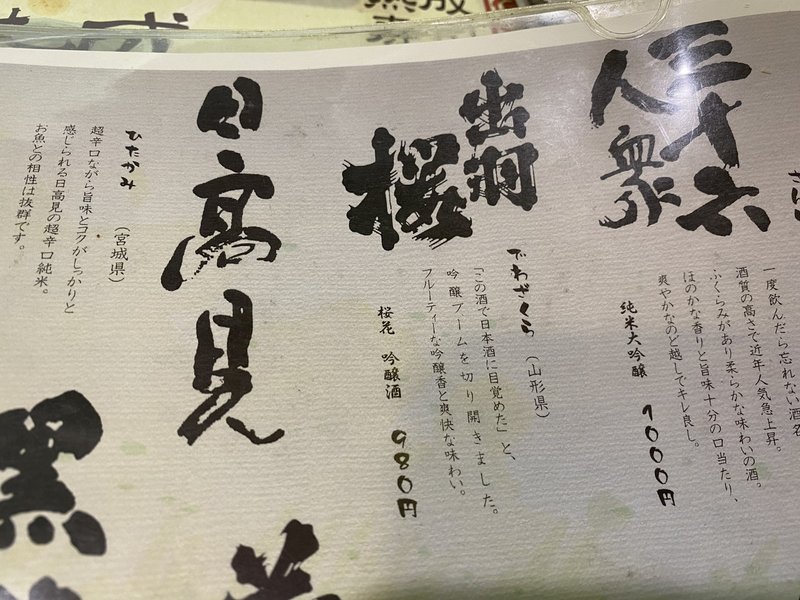 三十六
人衆
一度飲んだら忘れない酒名
酒質の高さで近年人気急上昇。
ふくらみがあり柔らかな味わいの酒。
ほのかな香りと旨味十分の口当たり、
爽やかなのど越しでキレ良し。
純米大吟醸 1000円
出羽
桜
でわざくら (山形県)
「この酒で日本酒に目覚めた」と、
吟醸ブームを切り開きました。
フルーティーな吟醸香と爽快な味わい。
桜花 吟醸酒 980円
日高見
ひたかみ (宮城県)
超辛口ながら旨味とコクがしっかりと
感じられる日高見の超辛口純米。
お魚との相性は抜群です。
黒